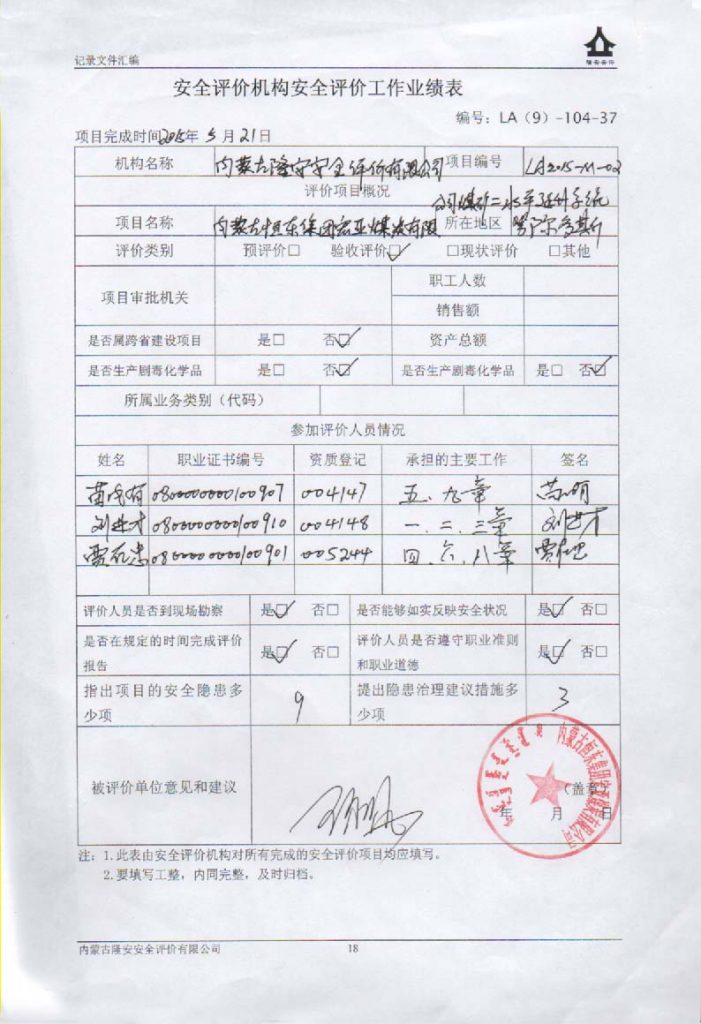 记录文件汇编
隆安安评
安全评价机构安全评价工作业绩表
编号：LA（9）-104-37
项目完成时间2015年 5 月 21日
机构名称 内蒙古隆安安全评价有限公司 项目编号 LA2015-M-02
评价项目概况
项目名称 内蒙古恒东集团宏亚煤炭有限公司煤矿二水平延伸系统 所在地区 鄂尔多斯
评价类别 预评价□ 验收评价☑ □现状评价 □其他
项目审批机关 职工人数
销售额
是否属跨省建设项目 是□ 否☑ 资产总额
是否生产剧毒化学品 是□ 否☑ 是否生产剧毒化学品 是□ 否☑
所属业务类别（代码）
参加评价人员情况
姓名 职业证书编号 资质登记 承担的主要工作 签名
0800000000100907 004147 五、九章
刘进才 0800000000100910 004148 一、二、三章 刘进才
0800000000100901 005244 四、六、八章
评价人员是否到现场勘察 是☑ 否□ 是否能够如实反映安全状况 是☑ 否□
是否在规定的时间完成评价 是☑ 否□ 评价人员是否遵守职业准则 是☑ 否□
报告 和职业道德
指出项目的安全隐患多 9 提出隐患治理建议措施多 3
少项 少项
被评价单位意见和建议 （盖章）
年 月 日
注：1.此表由安全评价机构对所有完成的安全评价项目均应填写。
2.要填写工整，内同完整，及时归档。
内蒙古隆安安全评价有限公司 18